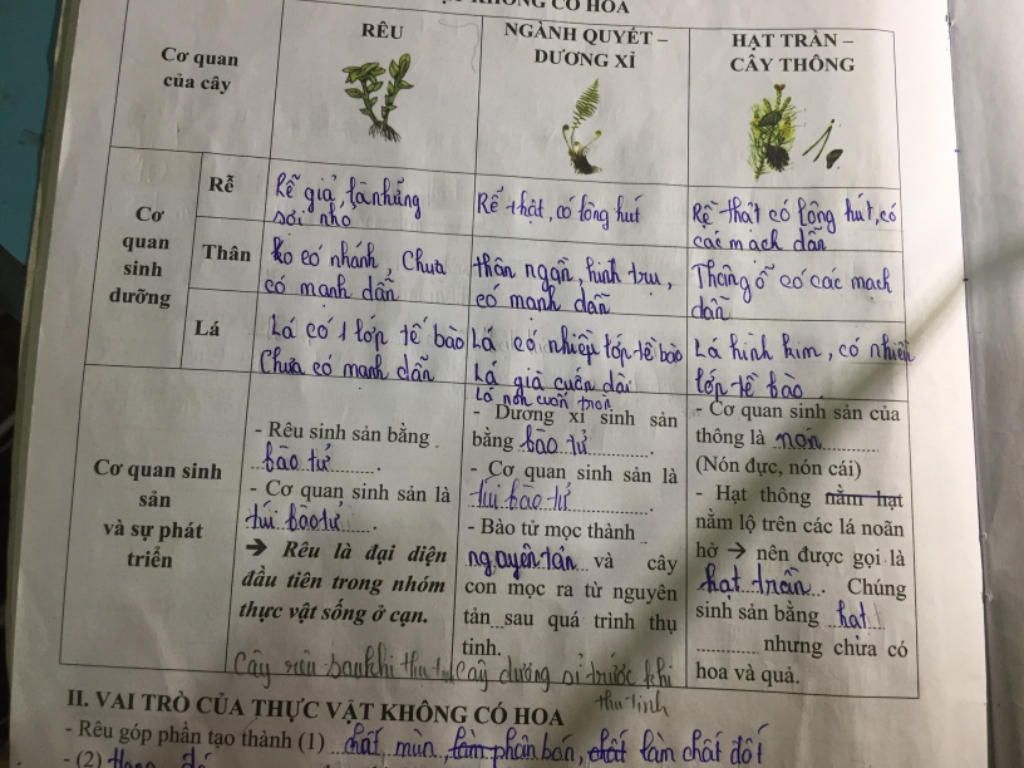 KHÔNG CÓ HOA
Cơ quan
của cây
RÊU
NGÀNH QUYẾT –
DƯƠNG XỈ
HẠT TRẦN –
CÂY THÔNG
Cơ
quan
sinh
dưỡng
Rễ
Rễ giả, là những
sợi nhỏ
Rễ thật, có lông hút
Rễ thật có lông hút, có
các mạch dẫn
Thân
ko có nhánh, chưa
có mạnh dẫn
thân ngắn, hình trụ,
có mạnh dẫn
Thân gỗ có các mạch
dẫn
Lá
Lá có 1 lớp tế bào
Chưa có mạnh dẫn
Lá có nhiều lớp tế bào
Lá già cuốn dài
Lá non cuốn tròn
Lá hình kim, có nhiều
lớp tế bào
Cơ quan sinh
sản
và sự phát
triển
- Rêu sinh sản bằng
bào tử.
- Cơ quan sinh sản là
túi bào tử.
➔ Rêu là đại diện
đầu tiên trong nhóm
thực vật sống ở cạn.
- Dương xỉ sinh sản
bằng bào tử.
- Cơ quan sinh sản là
túi bào tử.
- Bào tử mọc thành
nguyên tản và cây
con mọc ra từ nguyên
tản sau quá trình thụ
tinh.
- Cơ quan sinh sản của
thông là nón
(Nón đực, nón cái)
- Hạt thông nằm hạt
nằm lộ trên các lá noãn
hở ➔ nên được gọi là
hạt trần. Chúng
sinh sản bằng hạt
nhưng chưa có
hoa và quả.
Cây rêu sau khi thụ
Cây dương xỉ trước khi
thụ tinh
II. VAI TRÒ CỦA THỰC VẬT KHÔNG CÓ HOA
- Rêu góp phần tạo thành (1) chất mùn, làm phân bón, chất làm chất đốt
- (2)